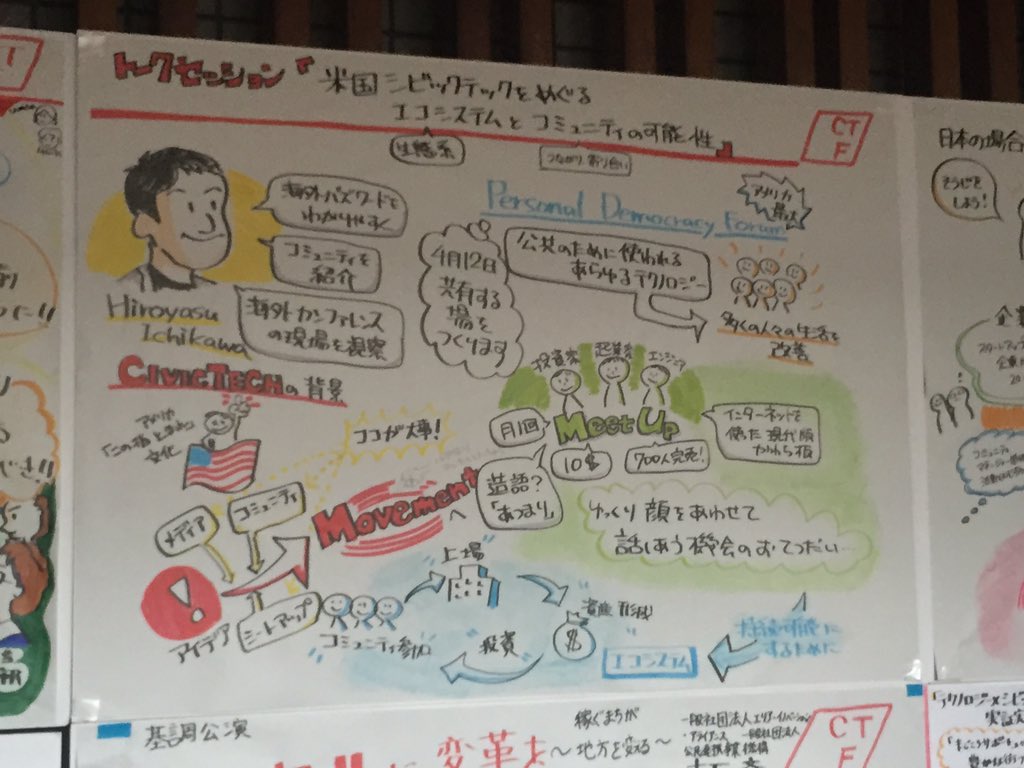 トークセッション「米国シビックテックをめぐる
エコシステムとコミュニティの可能性」
生態系
つながり、寄り合い
CT
F
海外バズワードを
わかりやすく
コミュニティを
紹介
海外カンファレンス
の現場を視察
Hiroyasu
Ichikawa
4月12日
共有する
場を
つくります
Personal Democracy Forum
アメリカ
最大
公共のために使われる
あらゆるテクノロジー
多くの人々の生活を
改善
CIVICTECHの背景
アメリカ
「この指とまれ」
文化
ココが大事!
メディア
コミュニティ
Movement
!
アイデア
ミートアップ
投資家
起業家
エンジニア
MeetUp
月1回
10$
700人完売!
インターネットを
使った現代版
かわら板
造語?
「あつまり」
ゆっくり顔をあわせて
話しあう機会のおてつだい…
コミュニティ参加
上場
資産形成
投資
エコシステム
持続可能に
するために
日本の場合
そうじを
しよう!
コミュニティ
基調公演
変革
稼ぐまちが
～地方を変える～
一般社団法人エリア・イノベーション
・アライアンス
一般社団法人
公民連携事業機構
CT
F